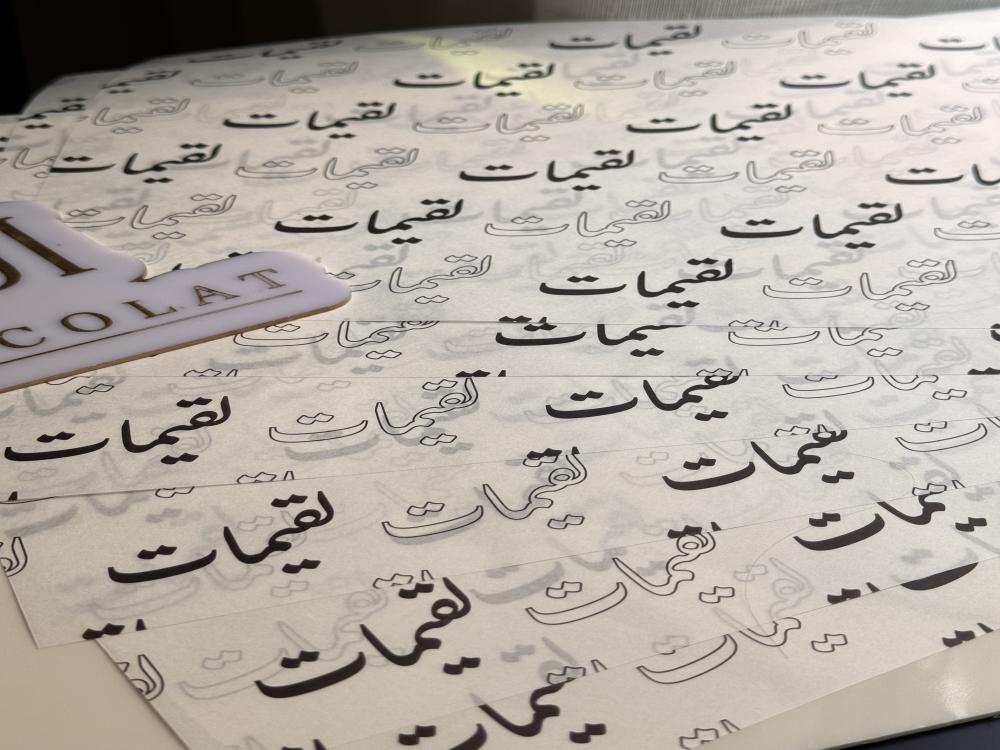 لقيمات لقيمات لقيمات لقيمات
لقيمات لقيمات لقيمات لقيمات لقيمات
لقيمات لقيمات لقيمات لقيمات لقيمات
لقيمات لقيمات لقيمات لقيمات
لقيمات لقيمات لقيمات لقيمات
لقيمات لقيمات
COLAT
لقيمات لقيمات لقيمات
لقيمات لقيمات لقيمات
لقيمات لقيمات